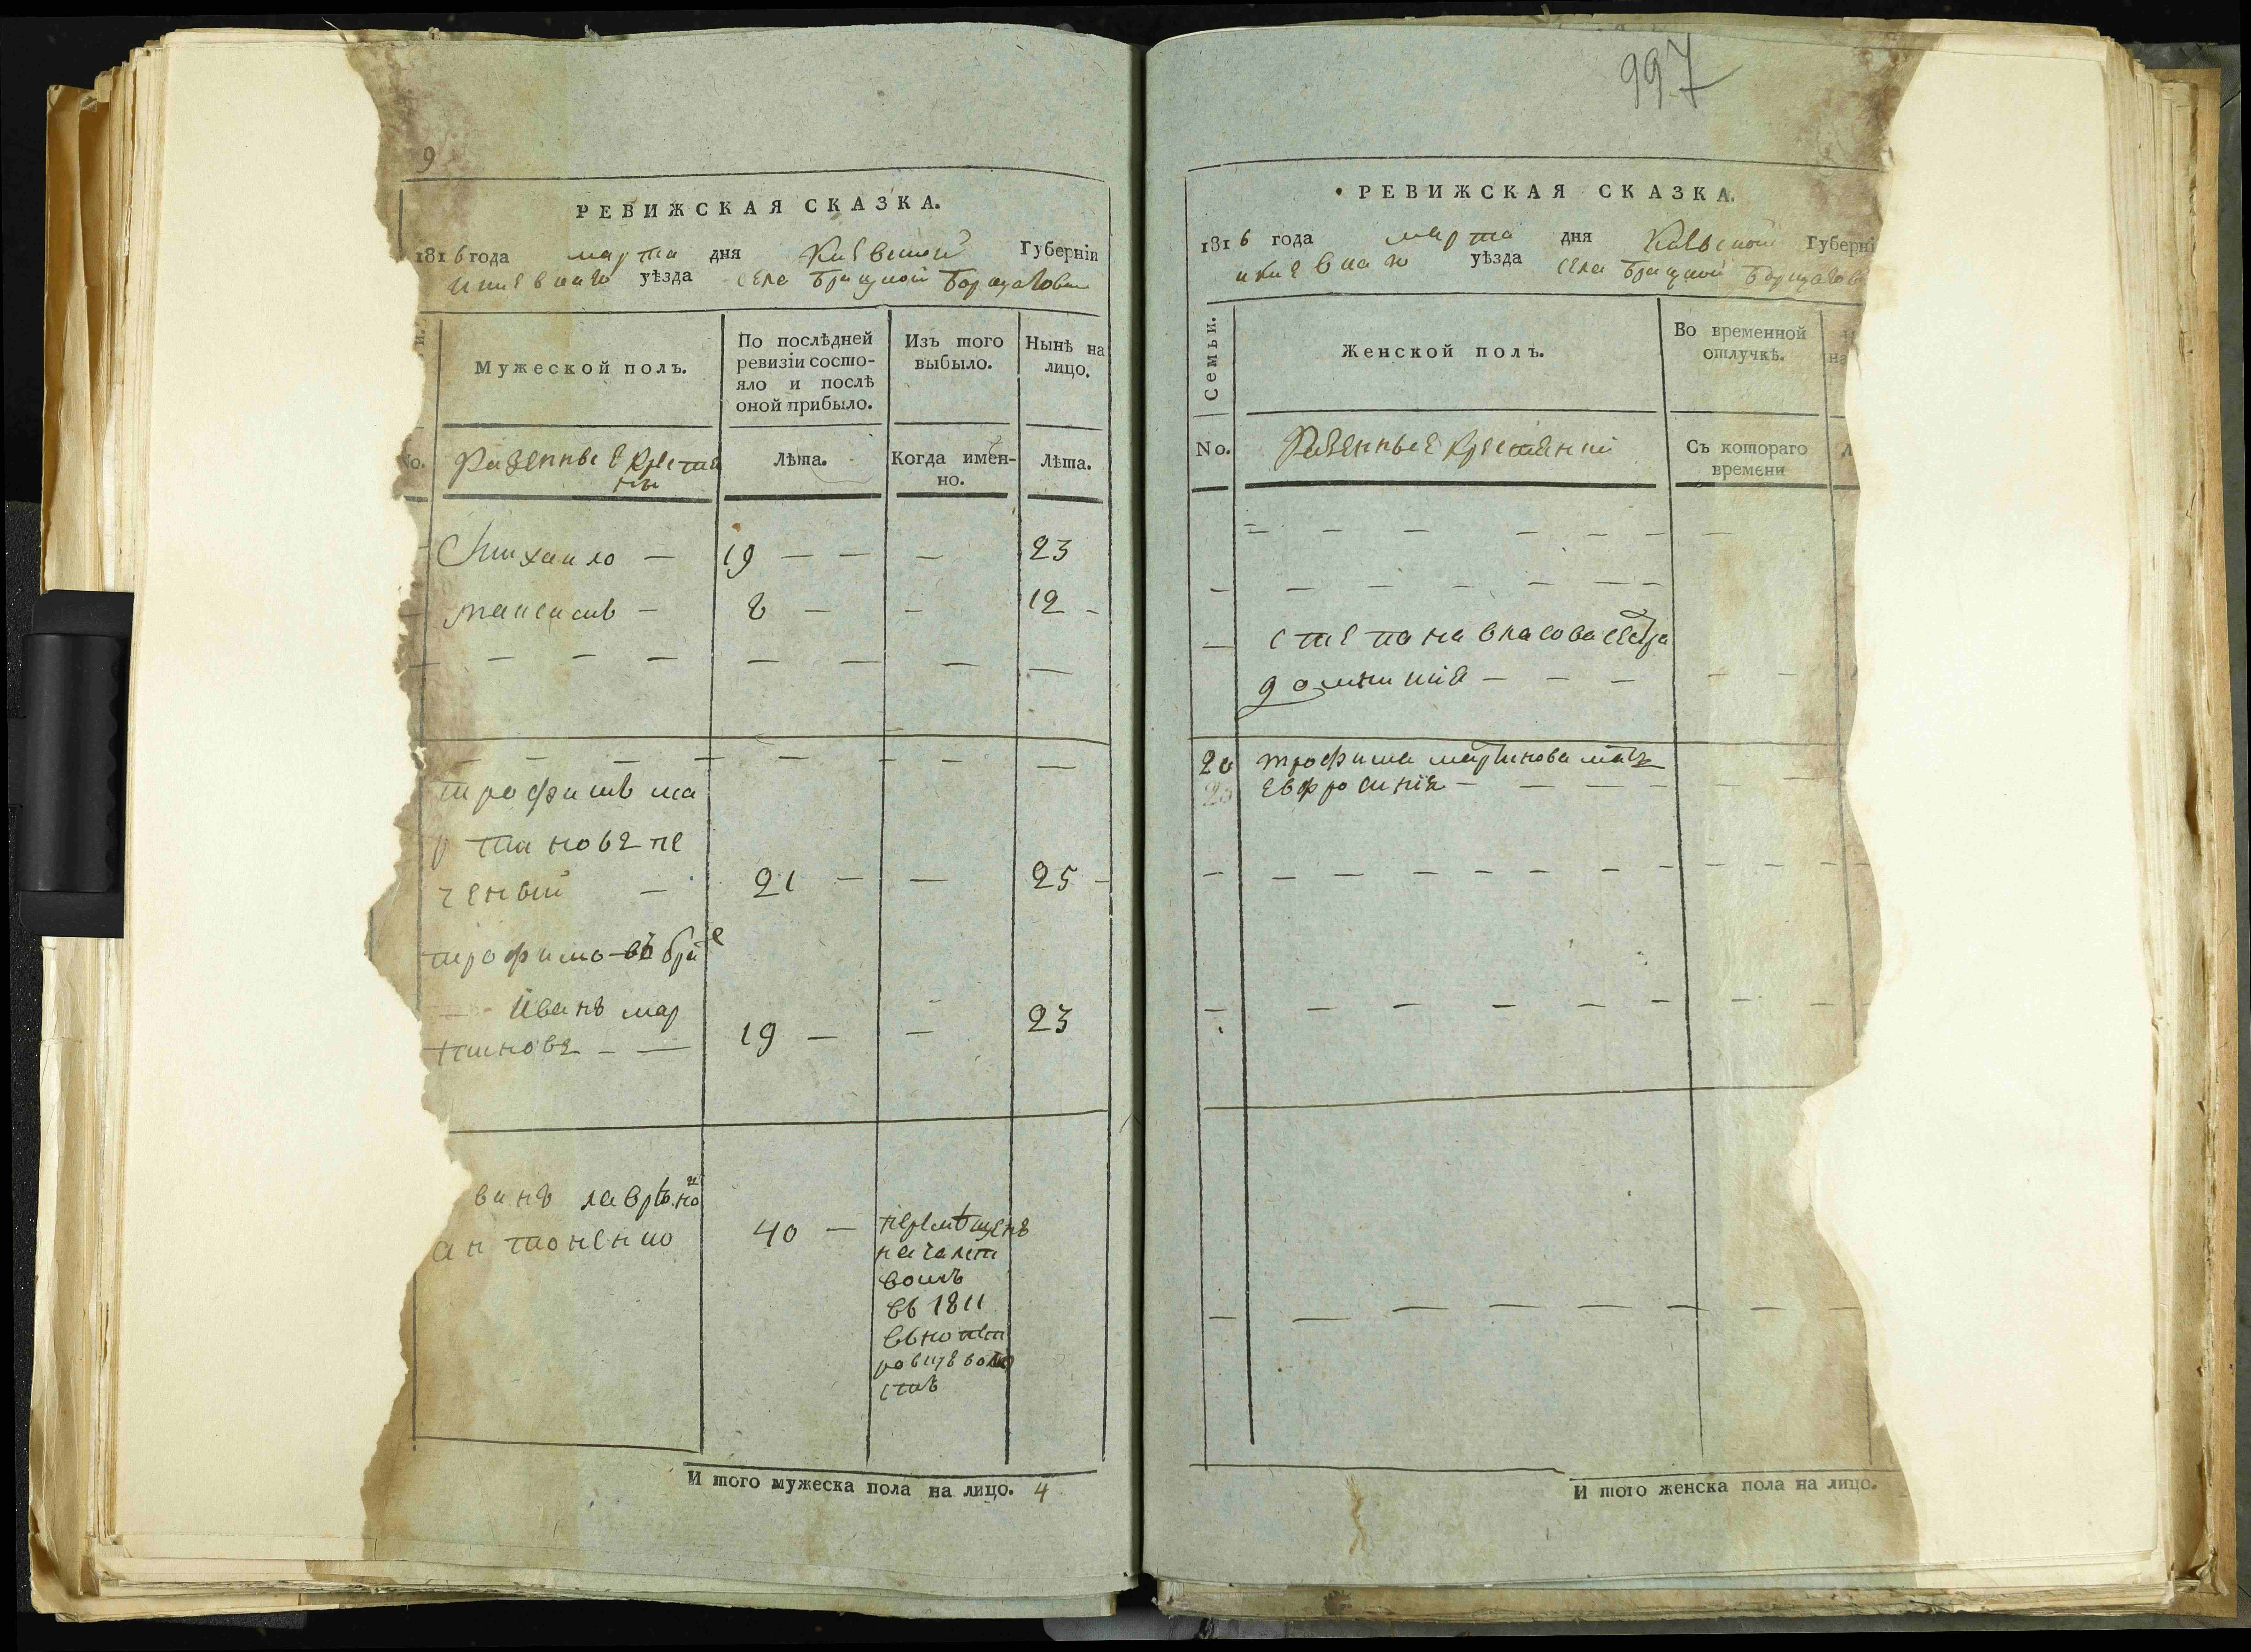 9
РЕВИЖСКАЯ СКАЗКА.
1816 года марта дня Киевской Губерніи
уѣзда села Брацкой Борщаговки
Мужеской полъ.
По послѣдней ревизіи состо-
яло и послѣ
оной прибыло.
Изъ того
выбыло.
Нынѣ на
лицо.
No.
Казенные крестя
ни
Лѣта.
Когда имен-
но.
Лѣта.
Михаило — 19 — — — 23
максимъ — 8 — — 12 -
трофимъ ма
ртиновъ пе
ченый — 21 — — 25 -
трофимовъ братъ
Иванъ мар
тиновъ - — 19 — — 23
ванъ лаврѣно
антоненко 40 —
перемѣщенъ
началст
вомъ
въ 1811
въ копет
ровцѣ воло
стъ
И того мужеска пола на лицо. 4
997
РЕВИЖСКАЯ СКАЗКА.
1816 года марта дня Киевской Губерні
уѣзда села Брацкой Борщагов
Семьи.
Женской полъ.
Во временной
отлучкѣ.
на
No.
Казенные крестяни
Съ котораго
времени
степана власова сестра
домникия — — —
20 трофима мартинова мать
20 евфросиния — — — —
И того женска пола на лицо.